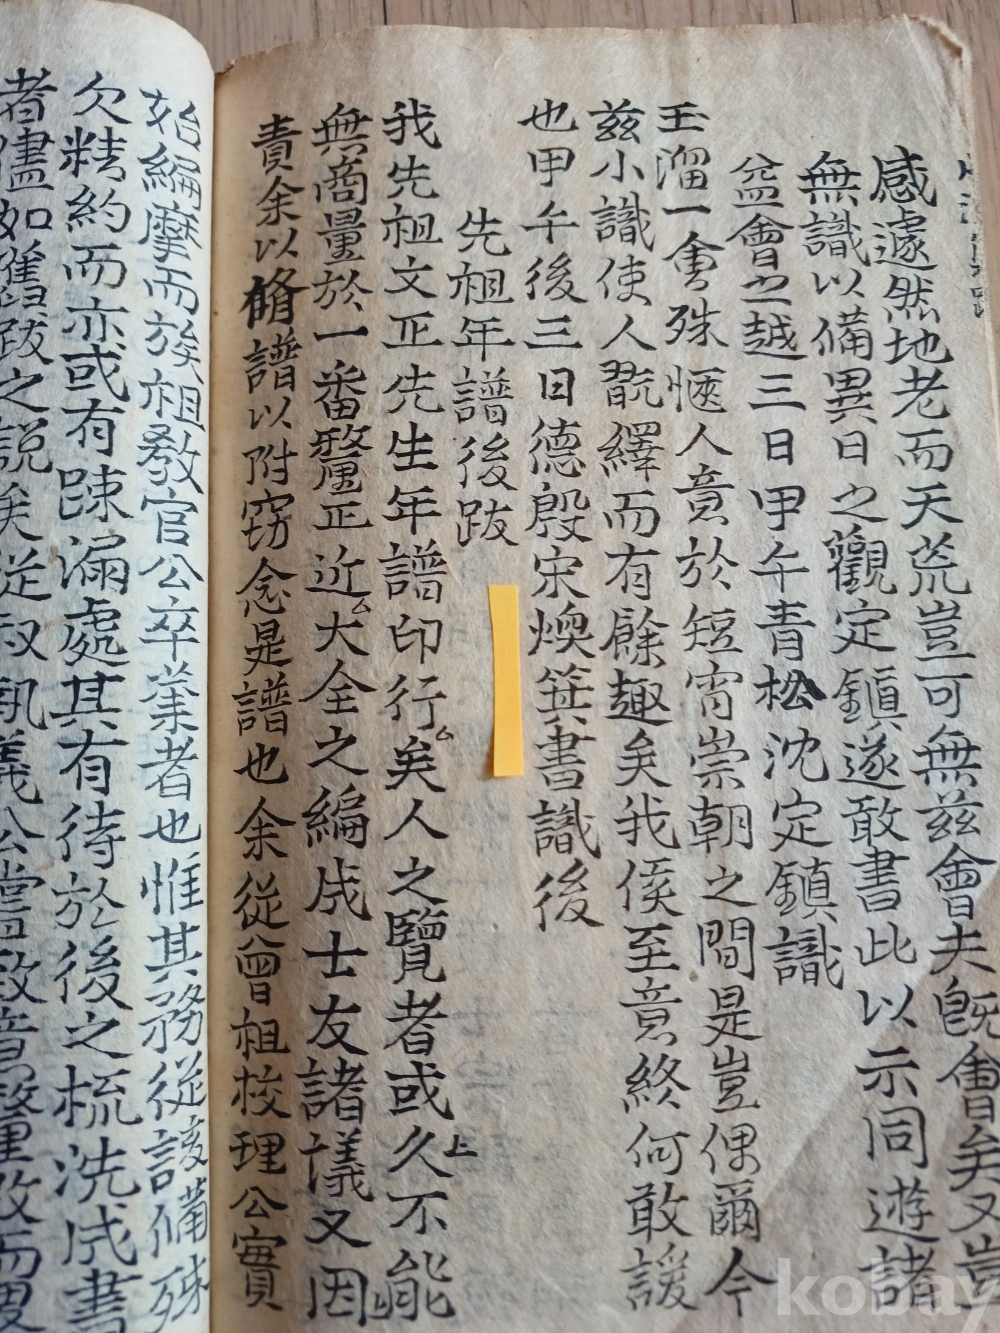 感遽然地老而天荒豈可無茲會夫旣會矣又豈
無識以備異日之觀定鎭遂敢書此以示同遊諸
益會之越三日甲午青松沈定鎭識
玉溜一會殊愜人意於短宵崇朝之間是豈偶爾今
茲小識使人翫繹而有餘趣矣我侯至意終何敢諼
也甲午後三日德殷宋煥箕書識後
先祖年譜後跋
我先祖文正先生年譜印行矣人之覽者或久不能
無商量於一番釐正近大全之編成士友諸議又因
責余以脩譜以附窃念是譜也余從曾祖校理公實
始編摩而族祖敎官公卒業者也惟其務從該備殊
欠精約而亦或有踈漏處其有待於後之梳洗成書
者儘如舊跋之說矣從叔
上
kobay